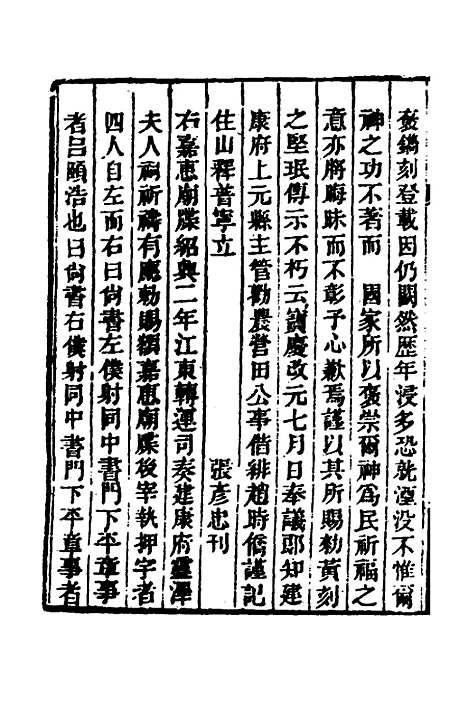 褒鐫刻登載因仍闕然歴年浸多恐就湮没不惟爾
神之功不著而　國家所以褒崇爾神為民祈福之
意亦將晦昧而不彰予心歉焉謹以其所賜勑黃刻
之堅珉傳示不朽云寶慶改元七月日奉議郎知建
康府上元縣主管勸農營田公事借緋趙時僑謹記
住山釋普寧立　　　　　　　　張彥忠刊
右嘉惠廟牒紹興二年江東轉運司奏建康府靈澤
夫人祠祈禱有應勅賜額嘉惠廟牒後宰執押字者
四人自左而右曰尙書左僕射同中書門下平章事
者呂頤浩也曰尙書右僕射同中書門下平章事者